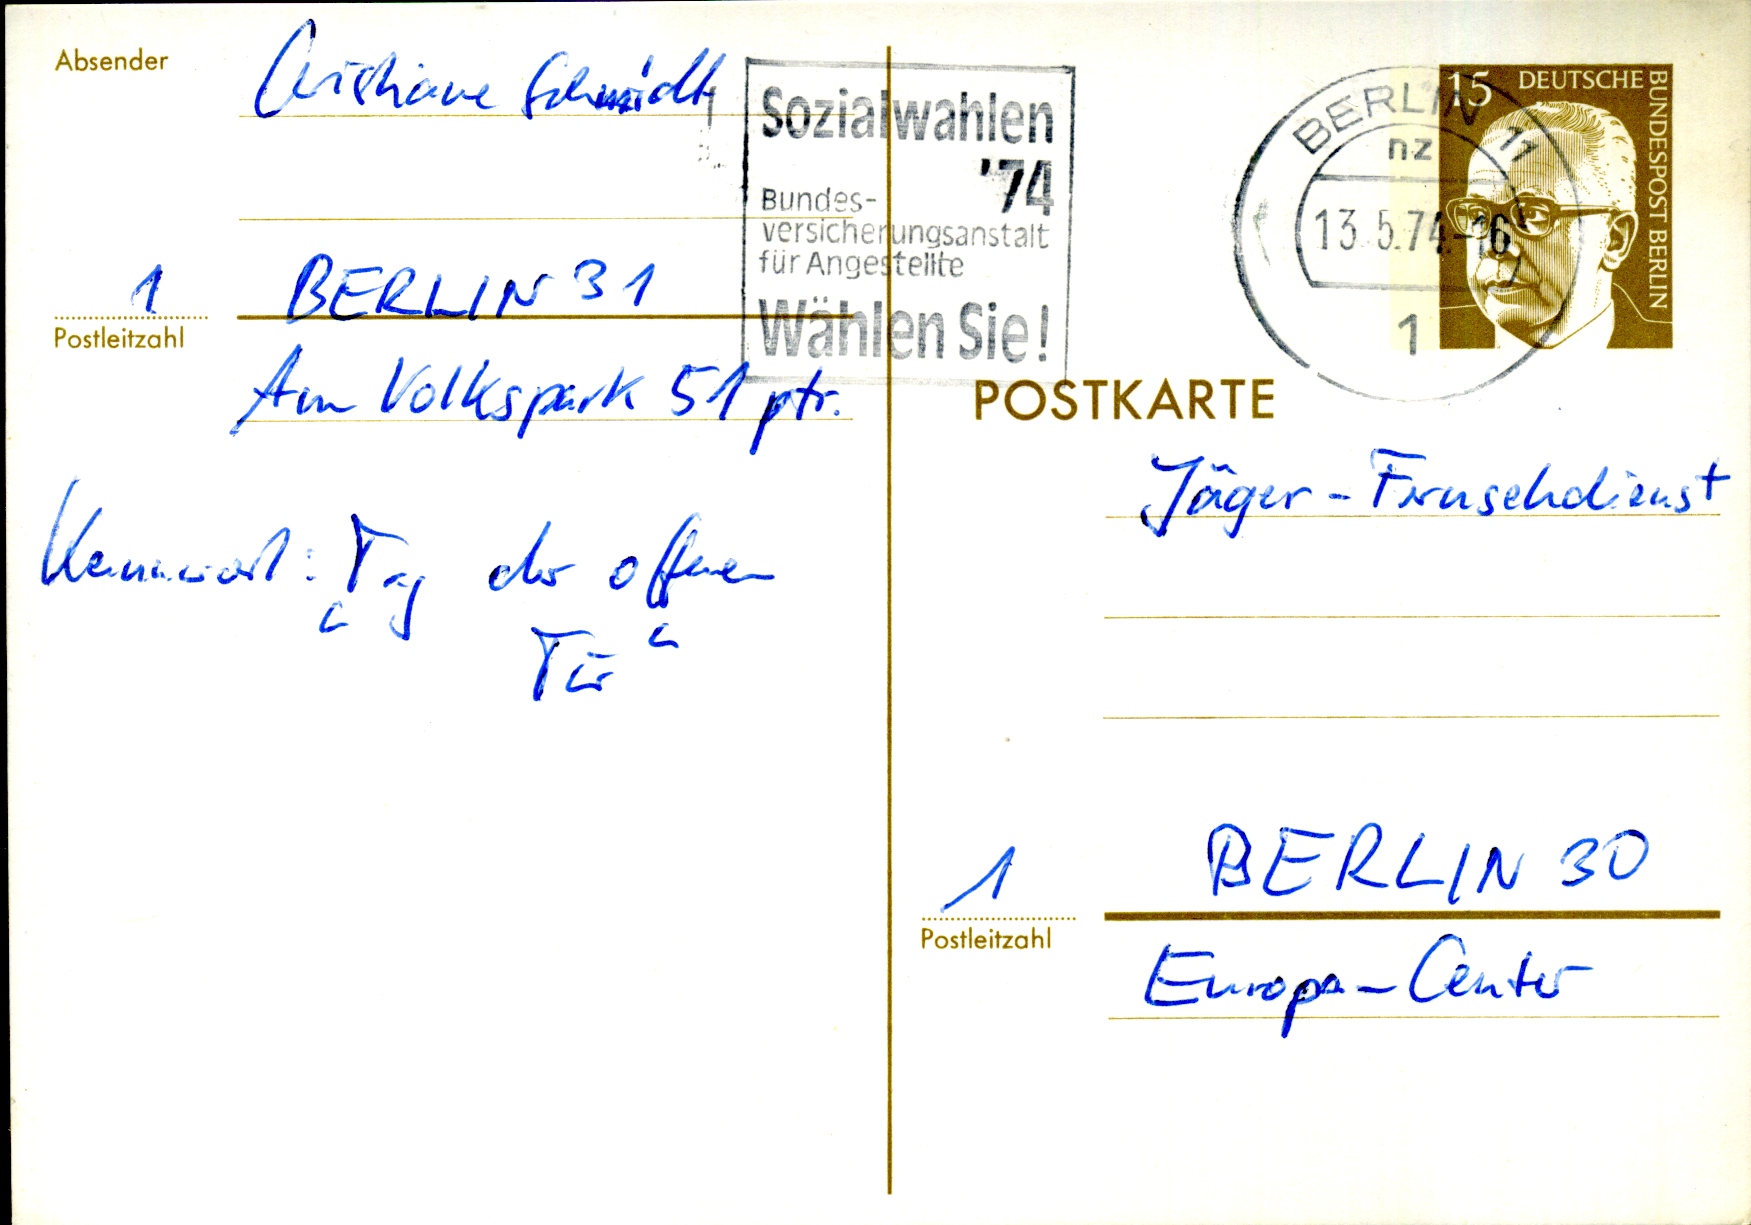 Absender
Christiane Schmidt
1 BERLIN 31
Postleitzahl
Am Volkspark 51 ptr.
Kennwort: "Tag der offenen
Tür"
Sozialwahlen
'74
Bundes-
versicherungsanstalt
für Angestellte
Wählen Sie!
BERLIN 11
nz
13.5.74.-16
1
15 DEUTSCHE BUNDESPOST BERLIN
POSTKARTE
Jäger-Fernsehdienst
1 BERLIN 30
Postleitzahl
Europa-Center